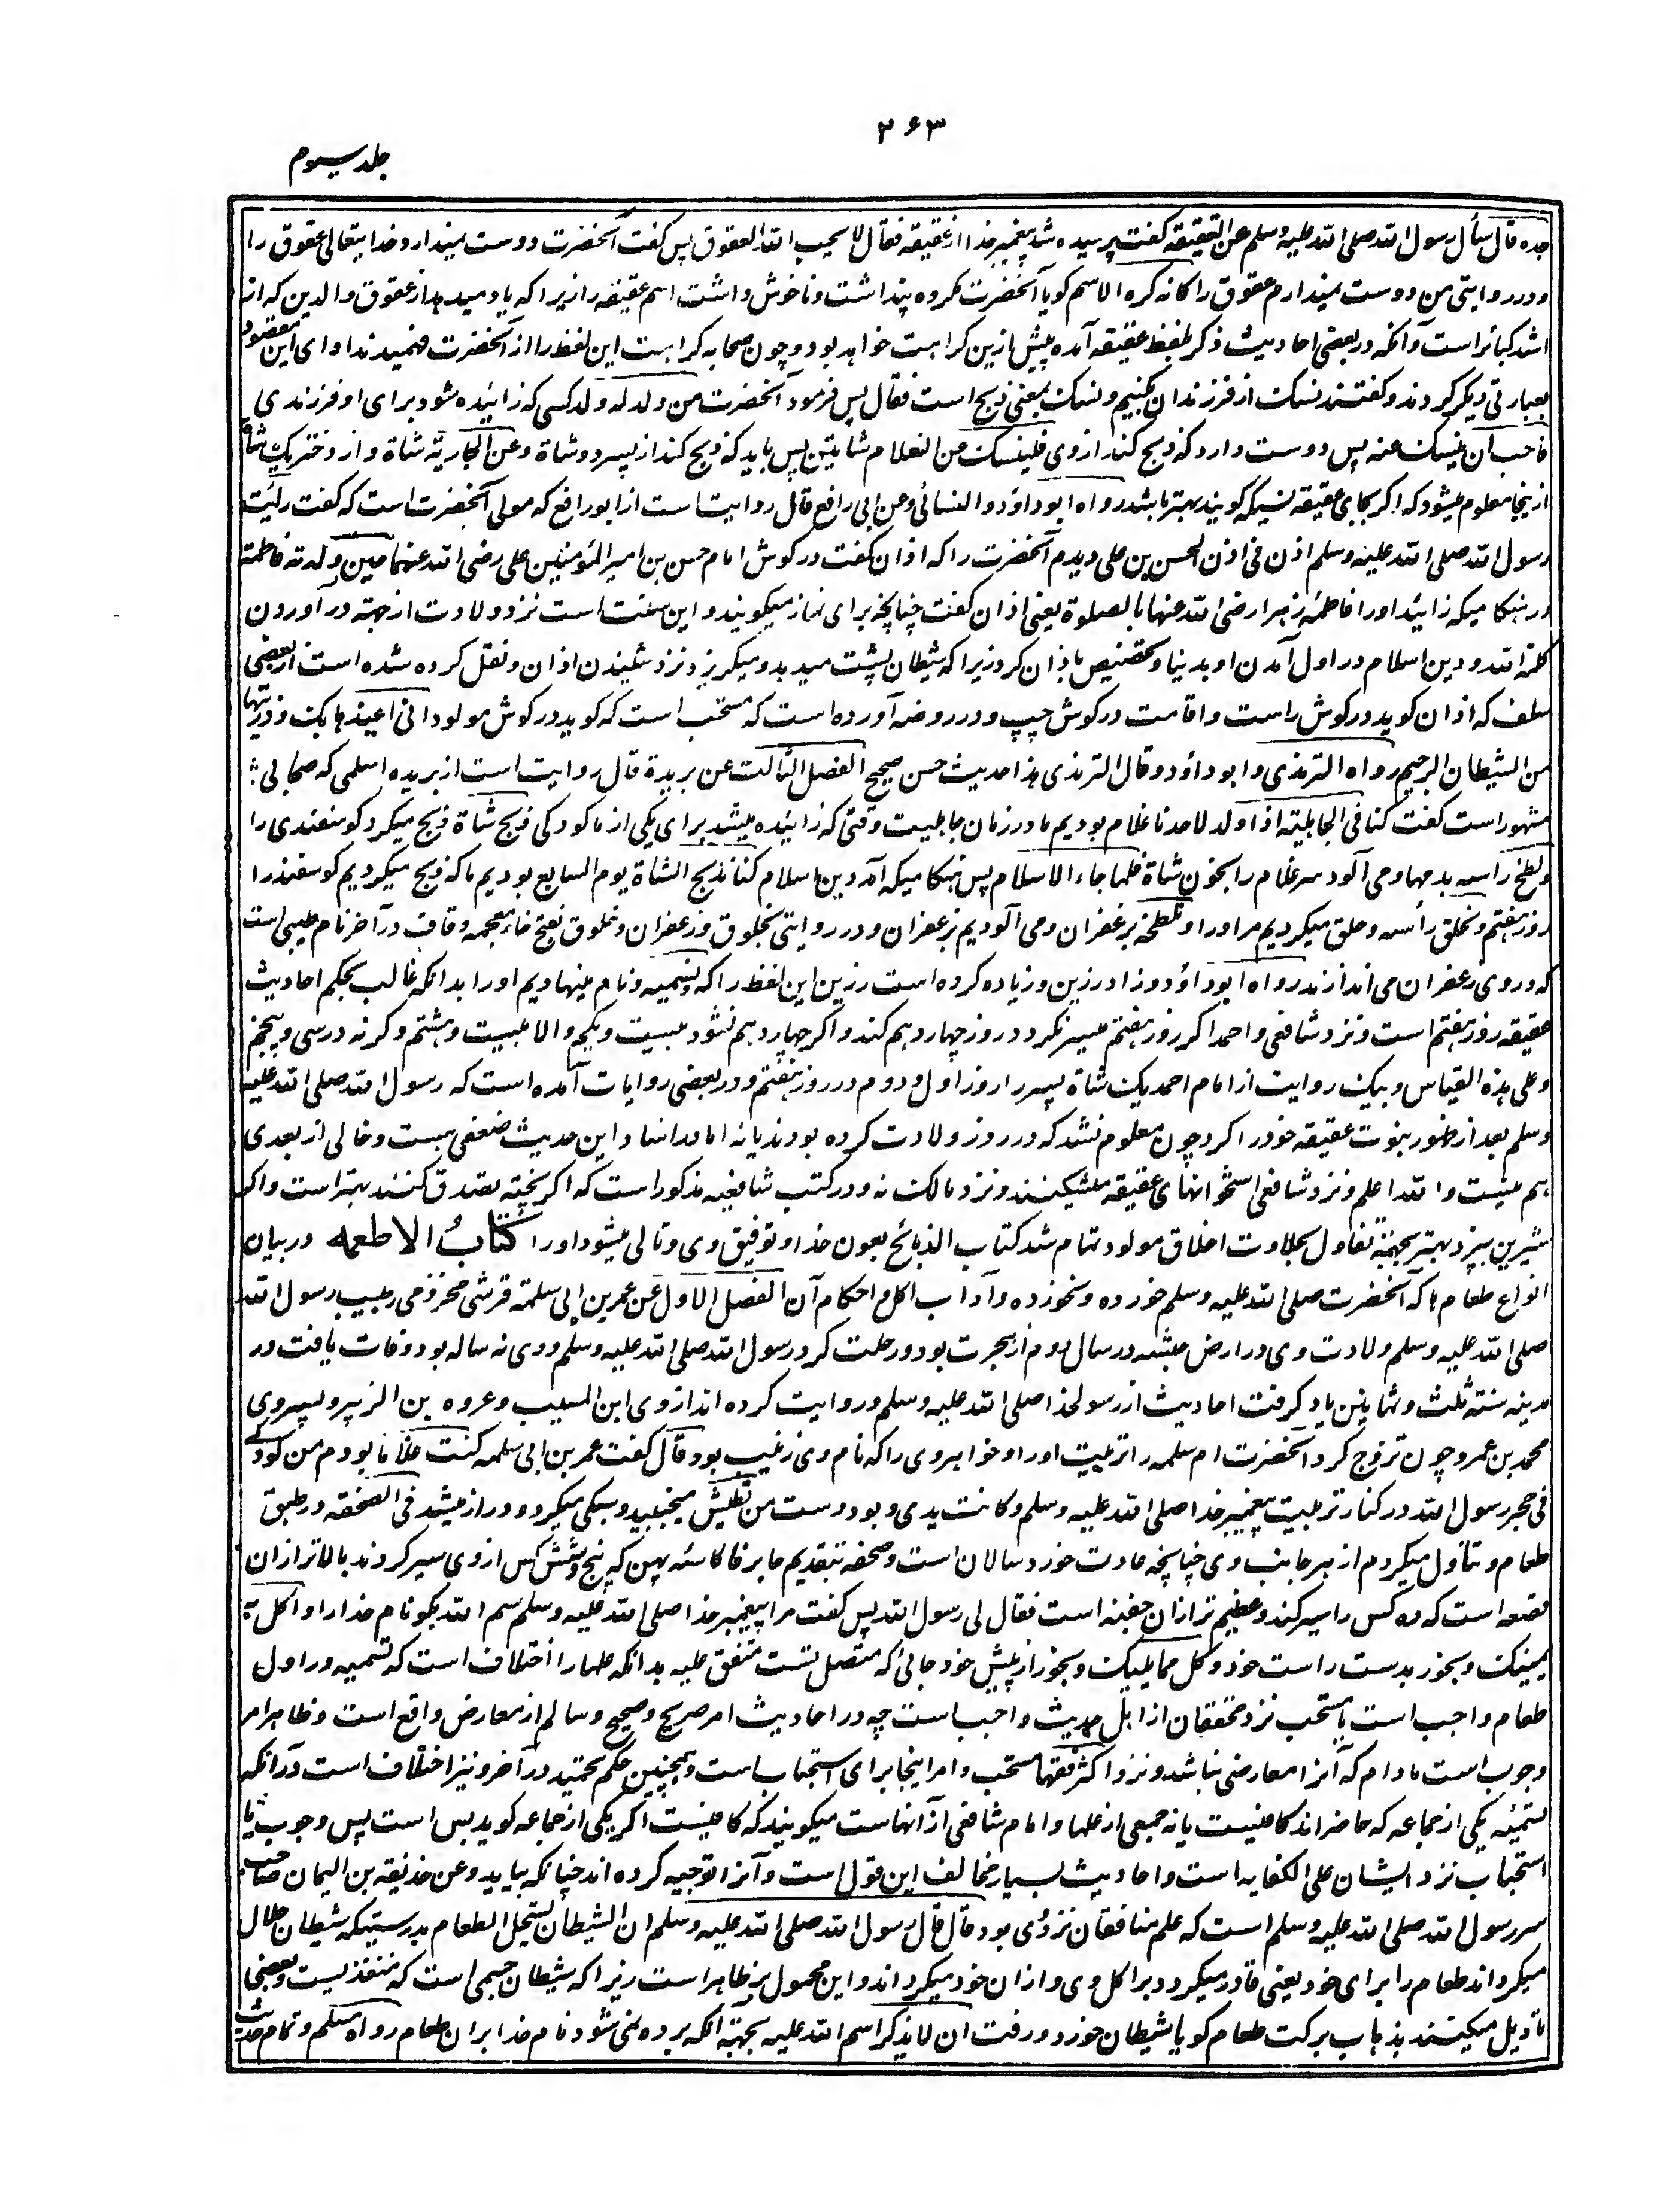 ۲۶۳
جلد سیوم
جده قال سأل رسول الله صلی الله علیه وسلم عن العقیقة گفت پرسیده شد پیغمبر خدا از عقیقه فقال لا یحب الله العقوق پس گفت آنحضرت دوست نمیدارد خدایتعالی عقوق را
و در روایتی من دوست نمیدارم عقوق را کانه کره الاسم گویا آنحضرت مکروه پنداشت و ناخوش داشت اسم عقیقه را زیرا که یاد میدهد از عقوق والدین که از
اشد کبائر است و آنکه در بعضی احادیث ذکر بلفظ عقیقه آمده پیش ازین کراهت خواهد بود و چون صحابه کراهت این لفظ را از آنحضرت فهمیدند ادای این مقصود
بعبارتی دیگر کردند و گفتند نسک از فرزندان بکنیم و نسک بمعنی ذبح است فقال پس فرمود آنحضرت من ولد له ولد کسی که زائیده شود برای او فرزندی
فاحب ان ینسک عنه پس دوست دارد که ذبح کند از وی فلینسک عن الغلام شاتین پس باید که ذبح کند از پسر دو شاة وعن الجاریة شاة و از دختر یک شاة
ازینجا معلوم میشود که اگر بجای عقیقه نسیکه گویند بهتر باشد رواه ابوداؤد والنسائی وعن ابی رافع قال روایت است از ابو رافع که مولی آنحضرت است که گفت رأیت
رسول الله صلی الله علیه وسلم اذن فی اذن الحسن بن علی دیدم آنحضرت را که اذان گفت در گوش امام حسن بن امیر المؤمنین علی رضی الله عنهما حین ولدته فاطمة
در هنگامیکه زائید او را فاطمه زهرا رضی الله عنها بالصلوة یعنی اذان گفت چنانچه برای نماز میگویند و این سنت است نزد ولادت از جهة در آوردن
کلمة الله و دین اسلام در اول آمدن او بدنیا و تخصیص باذان کرد زیرا که شیطان پشت میدهد و میگریزد نزد شنیدن اذان و نقل کرده شده است از بعضی
سلف که اذان گوید در گوش راست و اقامت در گوش چپ و در روضه آورده است که مستحب است که گوید در گوش مولود انی اعیذها بک وذریتها
من الشیطان الرجیم رواه الترمذی و ابوداؤد وقال الترمذی هذا حدیث حسن صحیح الفصل الثالث عن بریدة قال روایت است از بریده اسلمی که صحابی
مشهور است گفت کنا فی الجاهلیة اذا ولد لاحدنا غلام بودیم ما در زمان جاهلیت وقتی که زائیده میشد برای یکی از ما کودکی ذبح شاة ذبح میکرد گوسفندی را
ولطخ رأسه بدمها و می آلود سر غلام را بخون شاة فلما جاء الاسلام پس هنگامیکه آمد دین اسلام کنا نذبح الشاة یوم السابع بودیم ما که ذبح میکردیم گوسفند را
روز هفتم ونحلق رأسه و حلق میکردیم سر او را ونلطخه بزعفران و می آلودیم بزعفران و در روایتی بخلوق و زعفران و خلوق بفتح خاء معجمه و قاف در آخر نام طیبی است
که در وی زعفران می اندازند رواه ابوداؤد وزاد رزین و زیاده کرده است رزین این لفظ را که ونسمیه و نام مینهادیم او را بدانکه غالب بحکم احادیث
عقیقه روز هفتم است و نزد شافعی و احمد اگر روز هفتم میسر نگردد روز چهاردهم کند و اگر چهاردهم نشود بیست و یکم والا بیست و هشتم وگرنه در سی و پنجم
وعلی هذه القیاس و بیک روایت از امام احمد یک شاة پسر را روز اول و دوم در روز هفتم و در بعضی روایات آمده است که رسول الله صلی الله علیه
وسلم بعد از ظهور نبوت عقیقه خود را کرد چون معلوم نشد که در روز ولادت کرده بودند یا نه اما در اسناد این حدیث ضعفی هست و خالی از بعدی
هم نیست والله اعلم و نزد شافعی استخوانهای عقیقه میشکنند و نزد مالک نه و در کتب شافعیه مذکور است که اگر پخته تصدق کنند بهتر است و اگر
شیرین پزد بهتر بجهة تفاول بحلاوت اخلاق مولود تمام شد کتاب الذبائح بعون خدا و توفیق وی و تالی میشود او را کتابُ الاطعمه در بیان
انواع طعام ها که آنحضرت صلی الله علیه وسلم خورده و نخورده و آداب اکل و احکام آن الفصل الاول عن عمر بن ابی سلمة قرشی مخزومی ربیب رسول الله
صلی الله علیه وسلم ولادت وی در ارض حبشه در سال دوم از هجرت بود و رحلت کرد رسول الله صلی الله علیه وسلم و وی نه ساله بود وفات یافت در
مدینه سنة ثلث وثمانین یاد گرفت احادیث از رسولخدا صلی الله علیه وسلم و روایت کرده اند از وی ابن المسیب و عروه بن الزبیر و پسر وی
محمد بن عمر و چون تزوج کرد آنحضرت ام سلمه را تربیت او را و خواهر وی را که نام وی زینب بود قال گفت عمر بن ابی سلمه کنت غلاما بودم من کودکی
فی حجر رسول الله در کنار تربیت پیغمبر خدا صلی الله علیه وسلم وکانت یدی و بود دست من تطیش میجنبید و سبکی میکرد و دراز میشد فی الصحفة در طبق
طعام و تناول میکردم از هر جانب وی چنانچه عادت خوردسالان است و صحفه بتقدیم حا بر فا کاسه پهن که پنج و شش کس از وی سیر گردند بالاتر از ان
قصعه است که ده کس را سیر کند و عظیم تر از ان جفنه است فقال لی رسول الله پس گفت مرا پیغمبر خدا صلی الله علیه وسلم سم الله بگو نام خدا را وکل
بیمینک و بخور بدست راست خود وکل مما یلیک و بخور از پیش خود جائی که متصل تست متفق علیه بدانکه علما را اختلاف است که تسمیه در اول
طعام واجب است یا مستحب نزد محققان از اهل حدیث واجب است چه در احادیث امر صریح و صحیح و سالم از معارض واقع است و ظاهر امر
وجوب است مادام که آنرا معارضی نباشد و نزد اکثر فقها مستحب و امر اینجا برای استحباب است و همچنین حکم تحمید در آخر و نیز اختلاف است در آنکه
تسمیه یکی از جماعه که حاضر اند کافیست یا نه جمعی از علما و امام شافعی از آنهاست میگویند که کافیست اگر یکی از جماعه گوید بس است پس وجوب یا
استحباب نزد ایشان علی الکفایه است و احادیث بسیار مخالف این قول است و آنرا توجیه کرده اند چنانکه بیاید وعن حذیفة بن الیمان صاحب
سر رسول الله صلی الله علیه وسلم است که علم منافقان نزد وی بود قال قال رسول الله صلی الله علیه وسلم ان الشیطان یستحل الطعام بدرستیکه شیطان حلال
میگرداند طعام را برای خود یعنی قادر میگردد بر اکل وی و از ان خود میگرداند و این محمول بر ظاهر است زیرا که شیطان جسمی است که متغذیست و بعضی
تاویل میکنند بذهاب برکت طعام گویا شیطان خورد و رفت ان لا یذکر اسم الله علیه بجهة آنکه برده نمی شود نام خدا بر ان طعام رواه مسلم و تمام حدیث